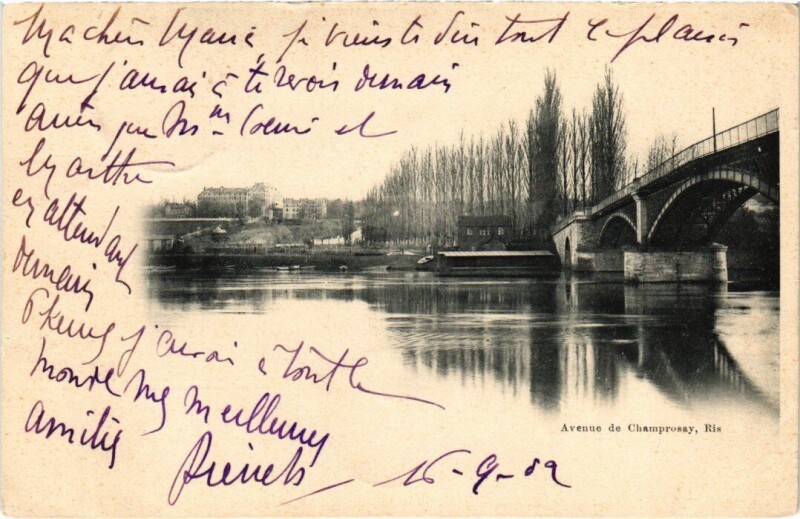 Ma chère Marie, je viens te dire tout le plaisir
que j'aurai à te revoir demain
ainsi que Mme et
Marthe
en attendant
demain
j'
à tout le
monde mes meilleures
amitiés
16-9-02
Avenue de Champrosay, Ris